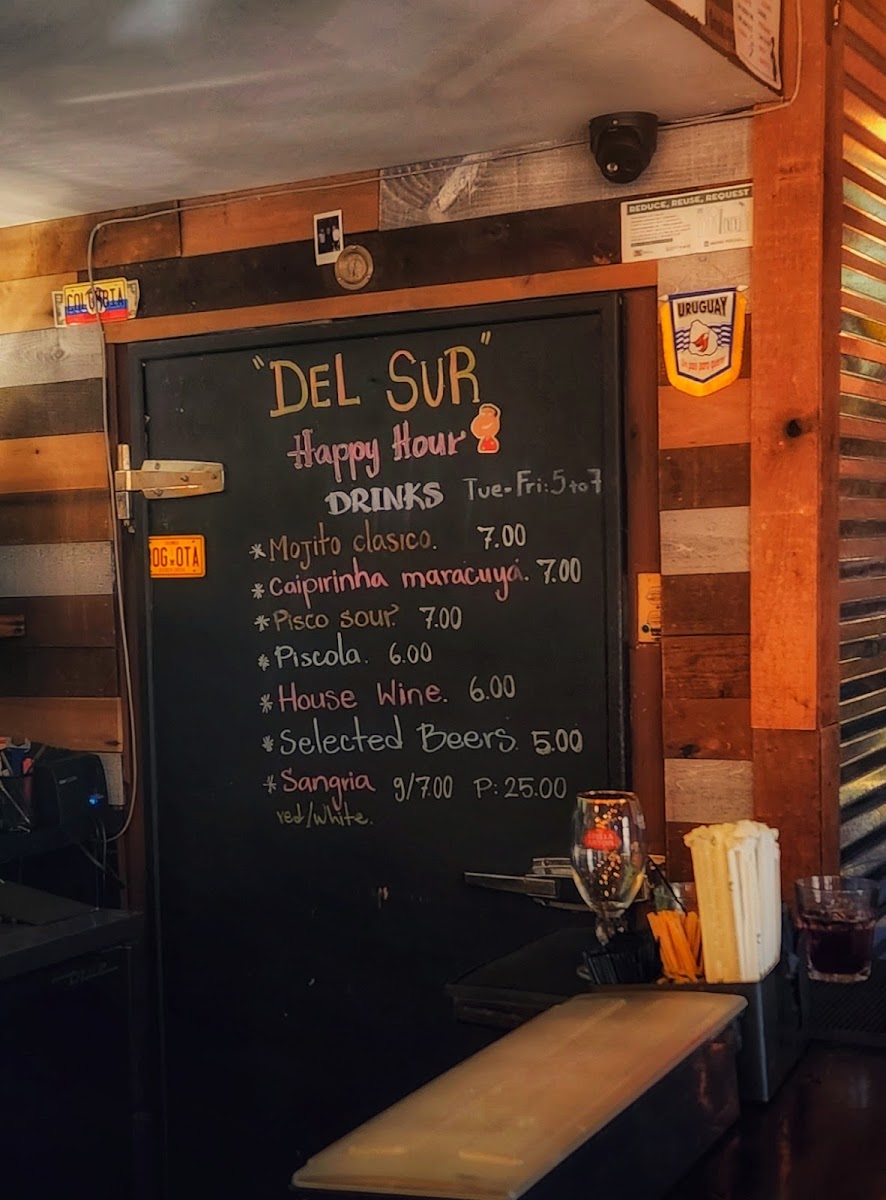 REDUCE, REUSE, REQUEST
COLOMBIA
URUGUAY
"DEL SUR"
Happy Hour
DRINKS Tue-Fri: 5 to 7
* Mojito clasico. 7.00
OG OTA
* Caipirinha maracuyá. 7.00
* Pisco sour. 7.00
* Piscola. 6.00
* House Wine. 6.00
* Selected Beers. 5.00
* Sangria g/7.00 P: 25.00
red/white.